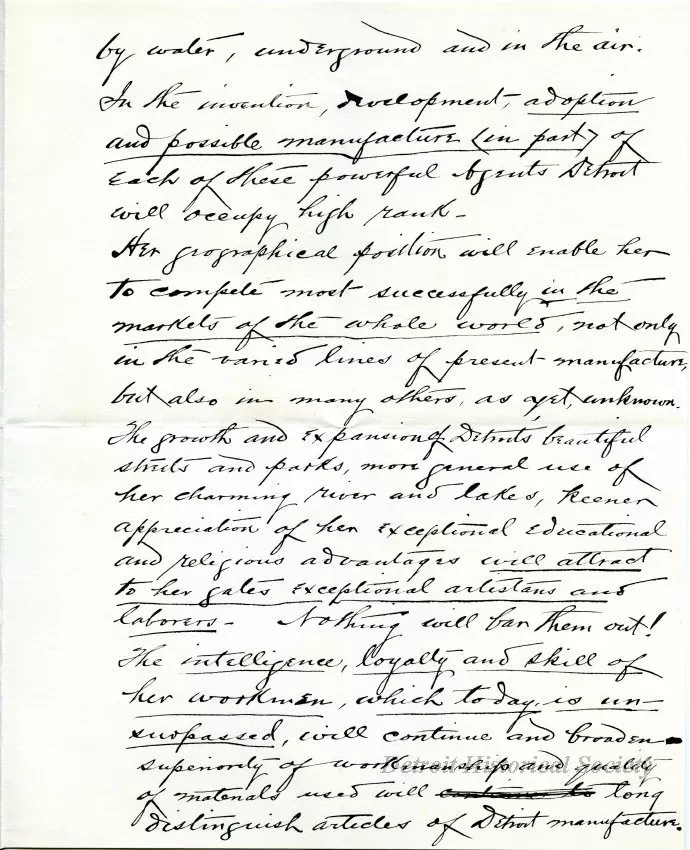 by water, underground and in the air.
In the invention, development, adoption
and possible manufacture (in part) of
each of these powerful Agents Detroit
will occupy high rank -
Her geographical position will enable her
to compete most successfully in the
markets of the whole world, not only
in the varied lines of present manufacture,
but also in many others, as yet, unknown.
The growth and expansion of Detroits beautiful
streets and parks, more general use of
her charming river and lakes, keener
appreciation of her exceptional educational
and religious advantages will attract
to her gates exceptional artistans and
laborers - Nothing will bar them out!
The intelligence, loyalty and skill of
her workmen, which today, is un-
surpassed, will continue and broaden -
superiority of workmanship and quality
of materials used will continue to long
distinguish articles of Detroit manufacture.
Detroit Historical Society